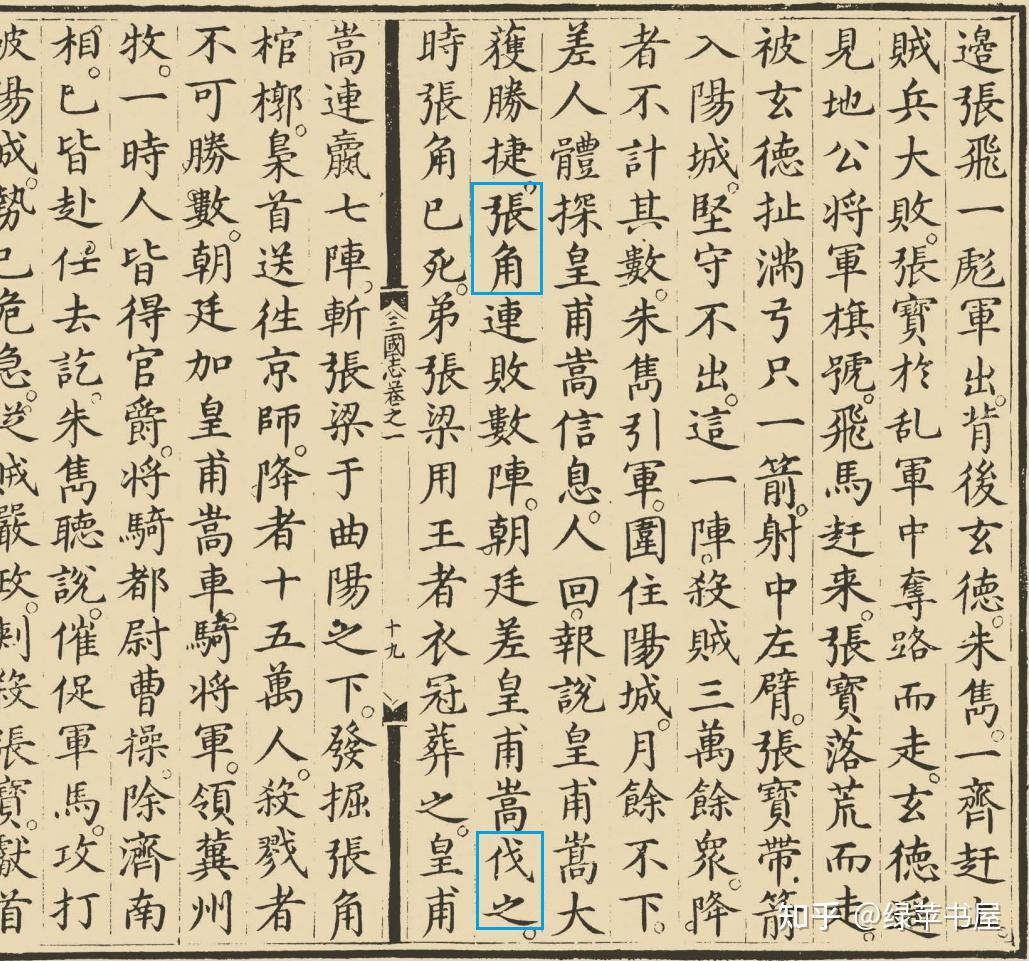 邉張飛一彪軍出。背後玄德。朱雋。一齊赶上。
賊兵大敗。張寳於乱軍中奪路而走。玄德
見地公将軍旗號。飛馬赶来。張寳落荒而走。
被玄徳扯满弓只一箭。射中左臂。張寳帶箭
入陽城。堅守不出。這一陣。殺賊三萬餘衆。降
者不計其數。朱雋引軍。圍住陽城。月餘不下。
差人體探皇甫嵩信息。人回。報說皇甫嵩大
獲勝捷。張角連敗數陣。朝廷差皇甫嵩伐之。
時張角已死。弟張梁用王者衣冠葬之。皇甫
三國志卷之一
十九
嵩連贏七陣。斬張梁于曲陽之下。發掘張角
棺槨。梟首送徃京師。降者十五萬人。殺戮者
不可勝數。朝廷加皇甫嵩車騎将軍。領冀州
牧。一時人皆得官爵。将騎都尉曹操。除濟南
相。已皆赴任去訖。朱雋聽說。催促軍馬。攻打
陽城。勢已危急。賊嚴政。刺殺張寳。獻首
知乎 @绿苹书屋